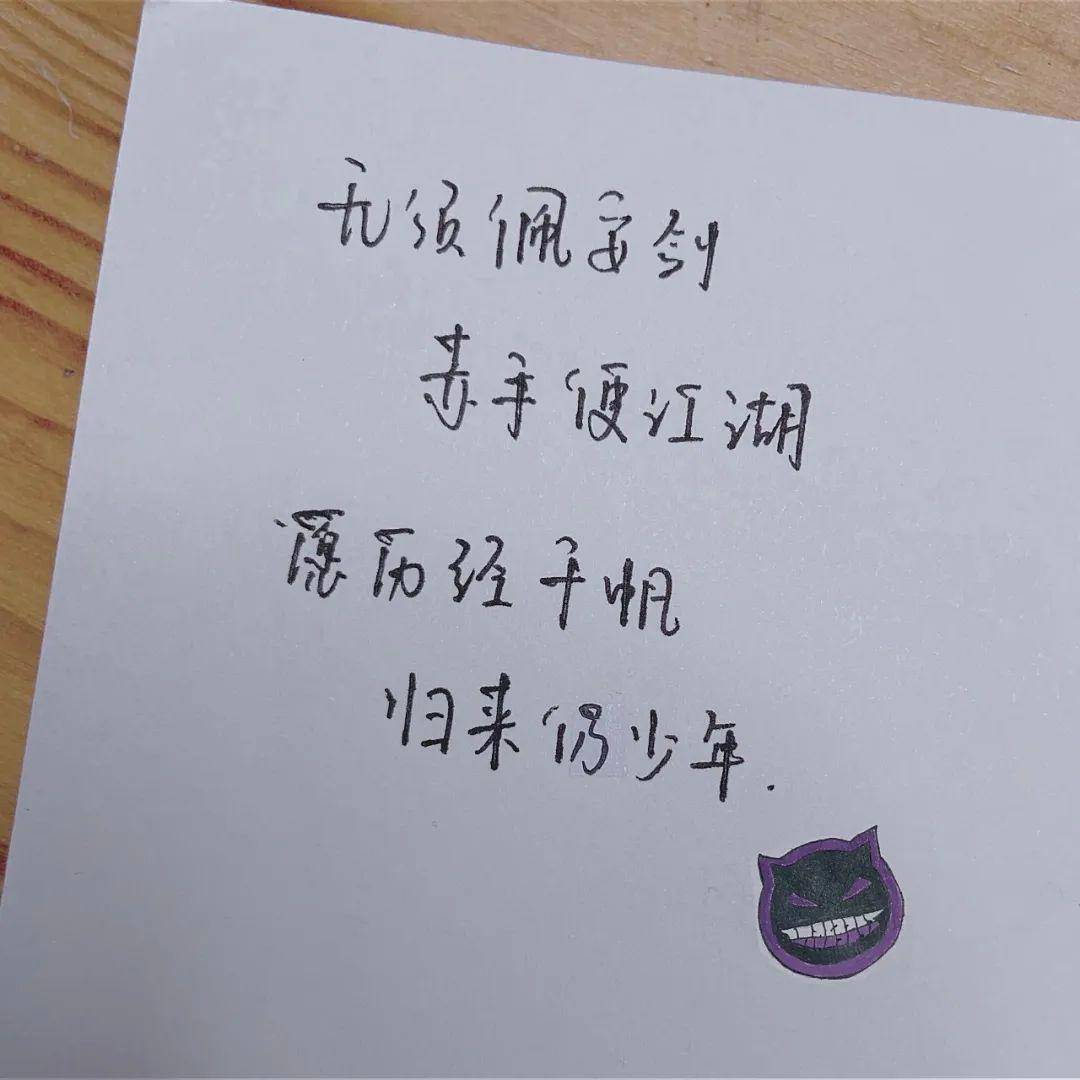 无须佩妄剑
赤手便江湖
愿历经千帆
归来仍少年.